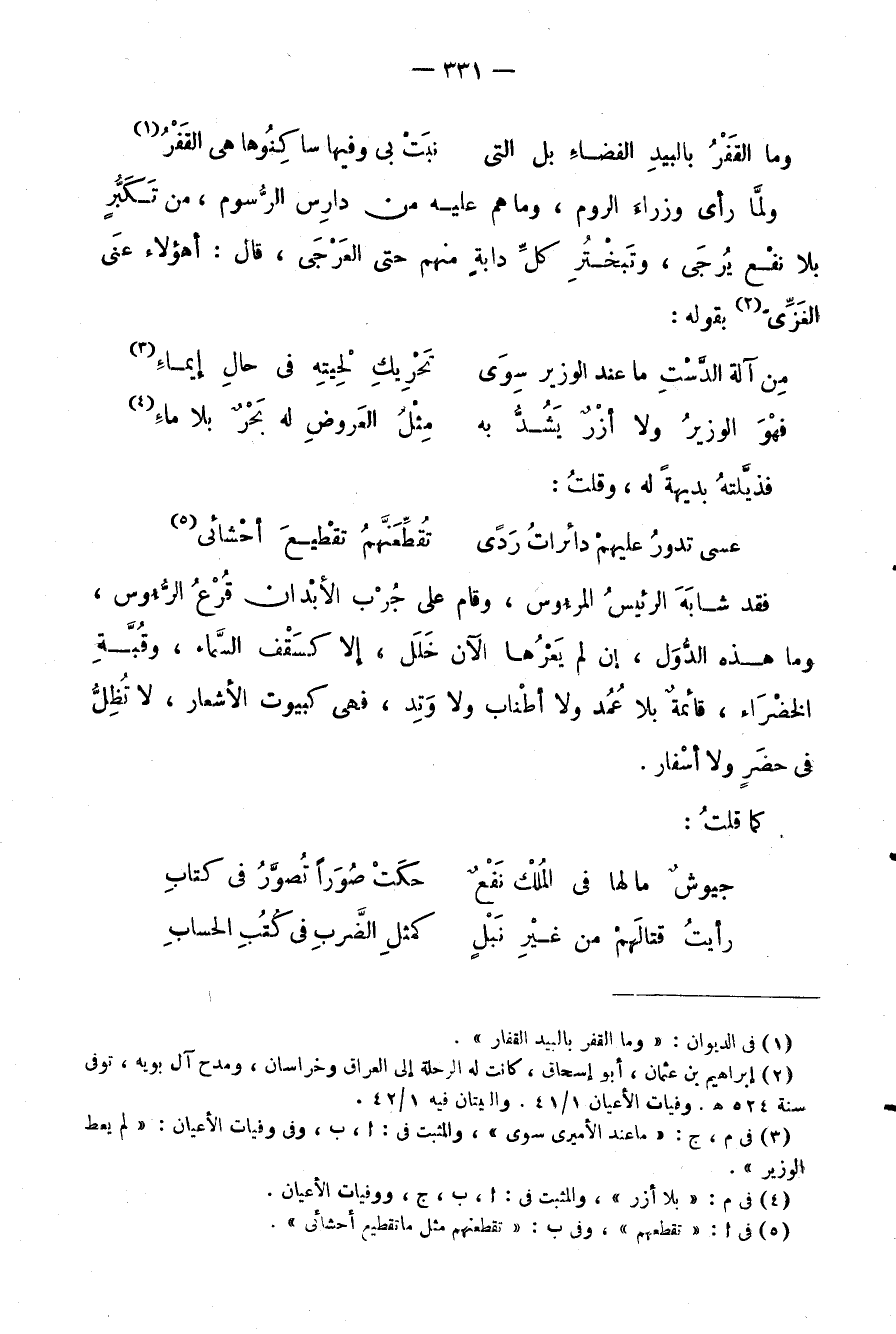 — ٣٣١ —
وما القَفْرُ بالبيدِ الفضاءِ بل التى نبَتْ بى وفيها ساكِنُوها هى القَفْرُ(١)
ولمَّا رأى وزراءَ الروم ، وماهم عليه من دارِس الرُّسوم ، من تَكَبُّرٍ
بلا نفْع يُرجَى ، وتَبخْتُرِ كلِّ دابةٍ منهم حتى العَرْجَى ، قال : أهؤلاء عنَى
الغَزِّىّ(٢) بقوله :
مِن آلة الدَّسْتِ ماعند الوزير سِوَى تَحْرِيكِ لْحِيتِه فى حالِ إيماءِ(٣)
فهْوَ الوزيرُ ولا أزْرٌ يَشُدُّ به مِثْلُ العَروضِ له بَحْرٌ بلا ماءِ(٤)
فذيَّلتهُ بديهةً له ، وقلتُ :
عسى تدورُ عليهمْ دائراتُ رَدًى تُقَطِّعَنَّهمُ تقْطيعَ أحْشائى(٥)
فقد شابَهَ الرئيسُ المرءوس ، وقام على جُرْب الأبْدان قُرْعُ الرُّءوس ،
وما هذه الدُّوَل ، إن لم يَعْرُها الآن خَلَل ، إلا كسَقْف السَّماء ، وقُبَّةِ
الخضْرَاء ، قائمةٌ بلا عُمُد ولا أطْناب ولا وَتِد ، فهى كبيوت الأشعار ، لا تُظِلُّ
فى حضَرٍ ولا أسْفار .
كما قلتُ :
جيوشٌ مالها فى المُلْك نَفْعٌ حكَتْ صُوَراً تُصوَّرُ فى كتابِ
رأيتُ قتالَهمْ من غيْرِ نَبْلٍ كمثلِ الضَّربِ فى كُتُبِ الحسابِ
(١) فى الديوان : « وما القفر بالبيد القفار » .
(٢) إبراهيم بن عثمان ، أبو إسحاق ، كانت له الرحلة إلى العراق وخراسان ، ومدح آل بويه ، توفى
سنة ٥٢٤ ه . وفيات الأعيان ٤١/١ . والبيتان فيه ٤٢/١ .
(٣) فى م ، ج : « ماعند الأميرى سوى » ، والمثبت فى : ا ، ب ، وفى وفيات الأعيان : « لم يعط
الوزير » .
(٤) فى م : « بلا أزر » ، والمثبت فى : ا ، ب ، ج ، ووفيات الأعيان .
(٥) فى ا : « تقطعهم » ، وفى ب : « تقطعنهم مثل ماتقطيع أحشائى » .